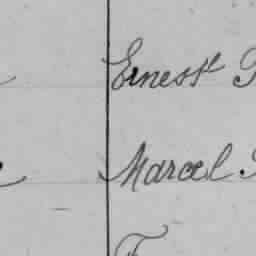 Ernest
Marcel